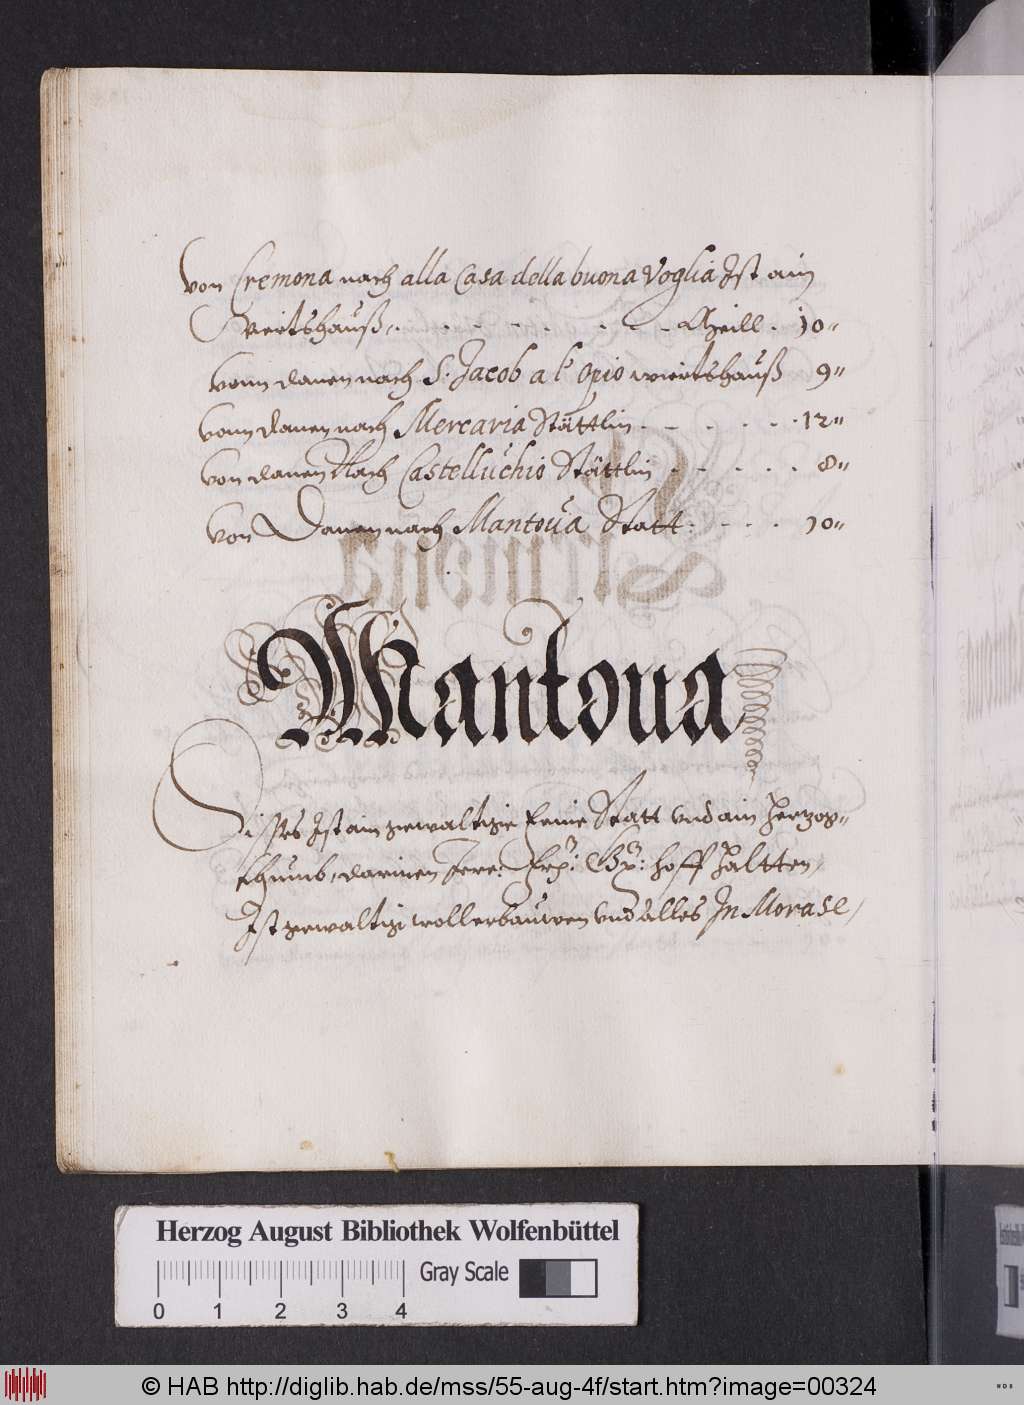 Von Cremona nach alla Casa della buona Voglia Ist ain
Wiertshauß, . . . . . . . Meill . 10"
Vonn danen nach S. Jacob a l'opio wiertshauß 9"
Vonn danen nach Mercaria Stättlin . . . . . . 12"
Von danen Nach Castelluchio Stättlin . . . . . 8"
Von Danen nach Mantoua Statt . . . . 10"
Mantoua
Disses Ist ain gewaltige feine Statt Vnd ain Hertzog=
thumb, darinen hoff Haltten,
Ist gewaltig woll erbauwen Vnd alles In Morase,
Herzog August Bibliothek Wolfenbüttel
Gray Scale
0 1 2 3 4
© HAB http://diglib.hab.de/mss/55-aug-4f/start.htm?image=00324